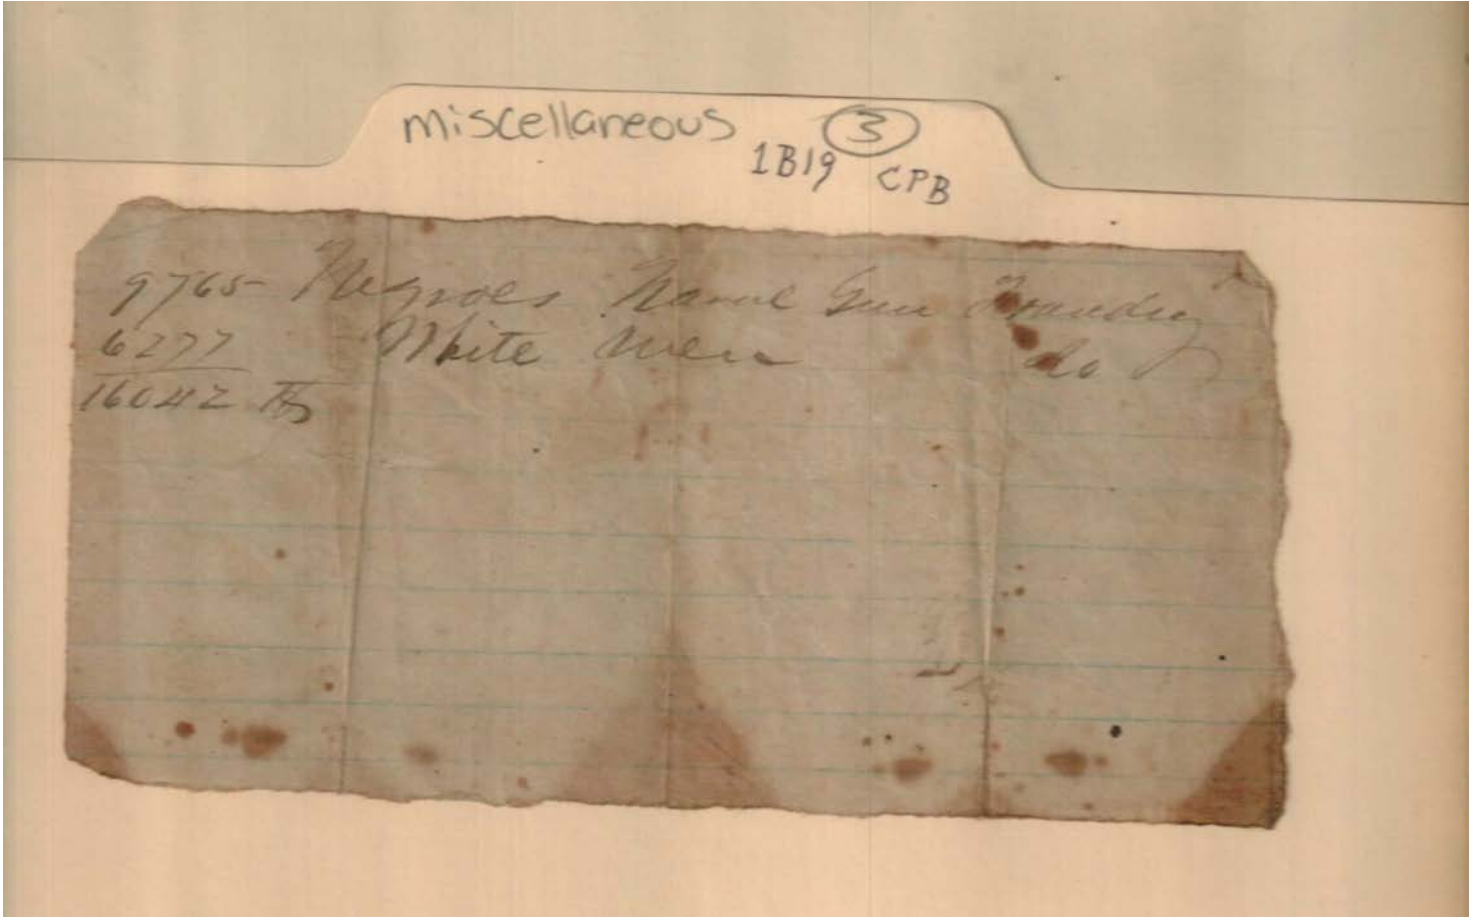 miscellaneous 3
1B19 CPB
9765- Negroes Naval Gun Foundry
6277 White Men do
16042 lbs